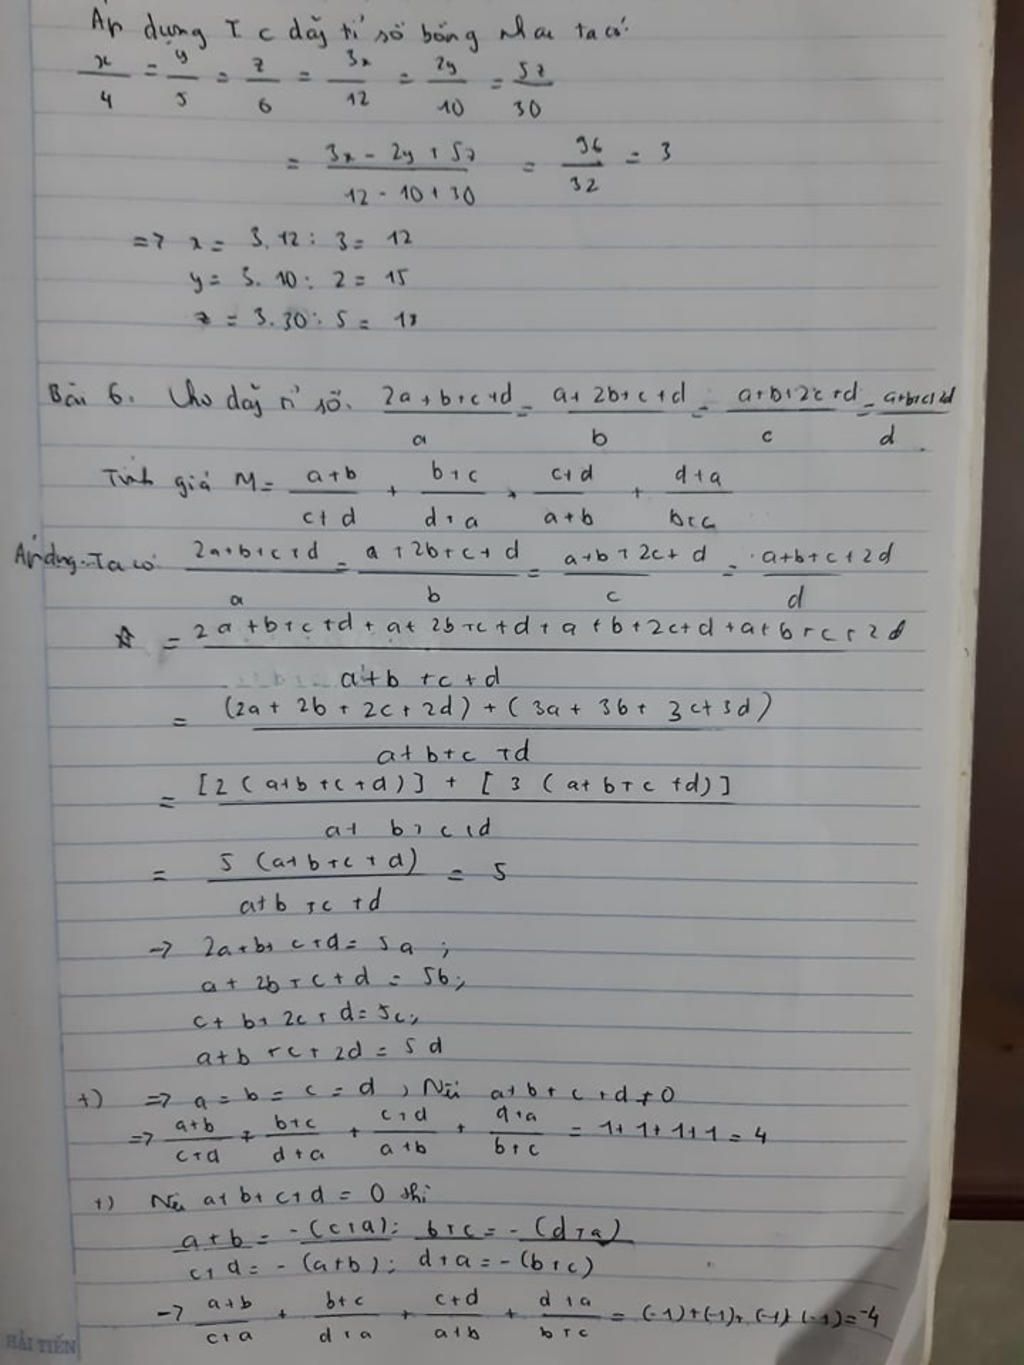 Áp dụng T c dãy tỉ số bằng nhau ta có:
x/4 = y/5 = z/6 = 3x/12 = 2y/10 = 5z/30
= (3x - 2y + 5z)/(12 - 10 + 30) = 96/32 = 3
=> x = 3.12 : 3 = 12
y = 3.10 : 2 = 15
z = 3.30 : 5 = 18
Bài 6. Cho dãy tỉ số. (2a+b+c+d)/a = (a+2b+c+d)/b = (a+b+2c+d)/c = (a+b+c+2d)/d
Tính giá M = (a+b)/(c+d) + (b+c)/(d+a) + (c+d)/(a+b) + (d+a)/(b+c)
Áp dụng. Ta có (2a+b+c+d)/a = (a+2b+c+d)/b = (a+b+2c+d)/c = (a+b+c+2d)/d
☆ = (2a+b+c+d+a+2b+c+d+a+b+2c+d+a+b+c+2d)/(a+b+c+d)
= ((2a+2b+2c+2d)+(3a+3b+3c+3d))/(a+b+c+d)
= ([2(a+b+c+d)] + [3(a+b+c+d)])/(a+b+c+d)
= 5(a+b+c+d)/(a+b+c+d) = 5
-> 2a+b+c+d = 5a;
a+2b+c+d = 5b;
c+b+2c+d = 5c;
a+b+c+2d = 5d
+) => a = b = c = d, Nếu a+b+c+d ≠ 0
=> (a+b)/(c+d) + (b+c)/(d+a) + (c+d)/(a+b) + (d+a)/(b+c) = 1+1+1+1 = 4
+) Nếu a+b+c+d = 0 thì
a+b = -(c+d); b+c = -(d+a)
c+d = -(a+b); d+a = -(b+c)
-> (a+b)/(c+d) + (b+c)/(d+a) + (c+d)/(a+b) + (d+a)/(b+c) = (-1)+(-1)+(-1)+(-1) = -4
HẢI TIẾN